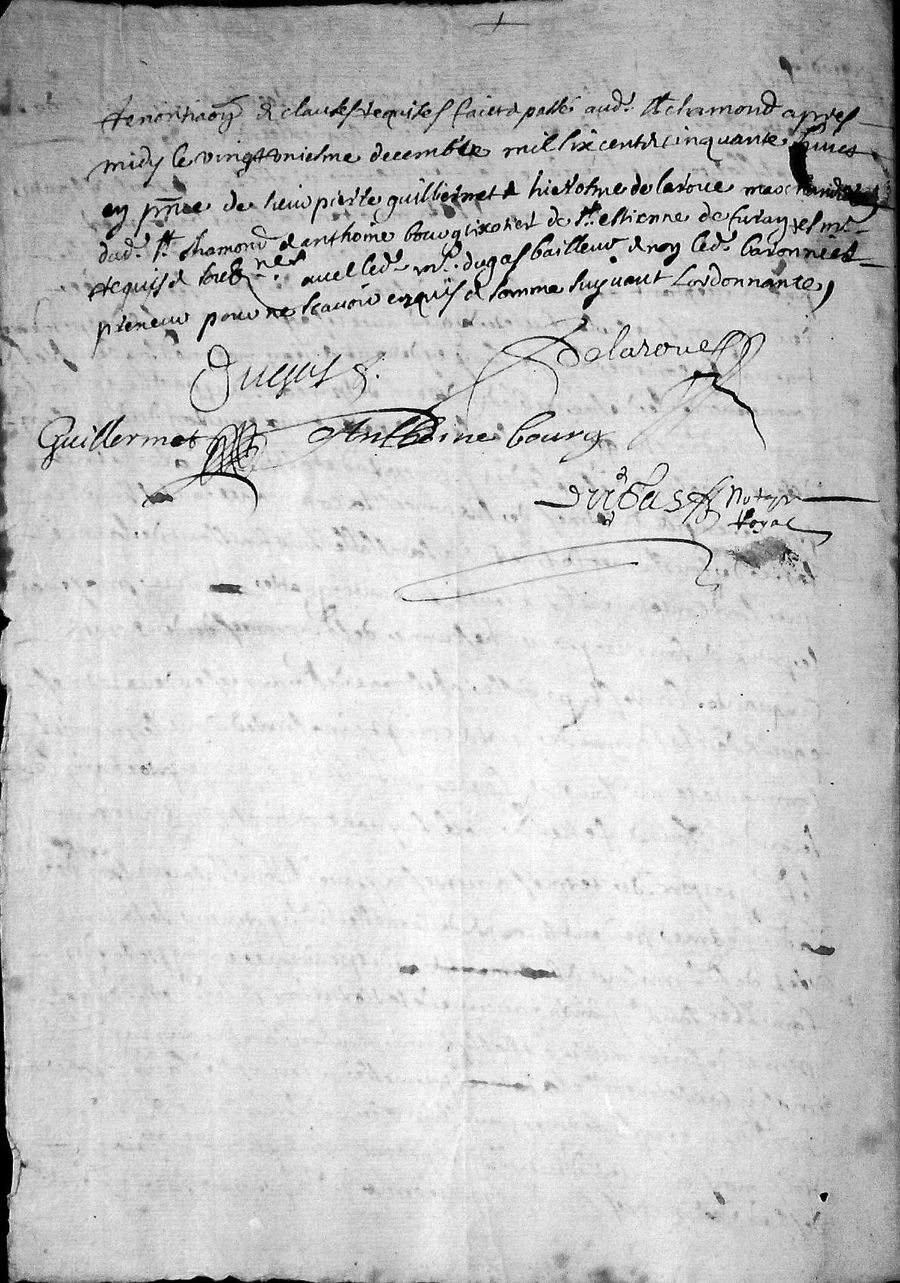 Renontiaon & clauses requises faict & passé aud. St chamond apres
midy le vingt oniesme decembre mil six centz cinquante
en pnce de sieur pierre guillermet & hierosme delaroue marchandz
dud. St chamond & anthoine bourg de St estienne de furan
requis & soubnes avec led. sr. dugas bailleur & non led.
preneur pour ne scavoir enquis & somme suyvant Lordonnance,
Dugas
Delaroue
Guillermet
Anthoine bourg
Notaire
Royal